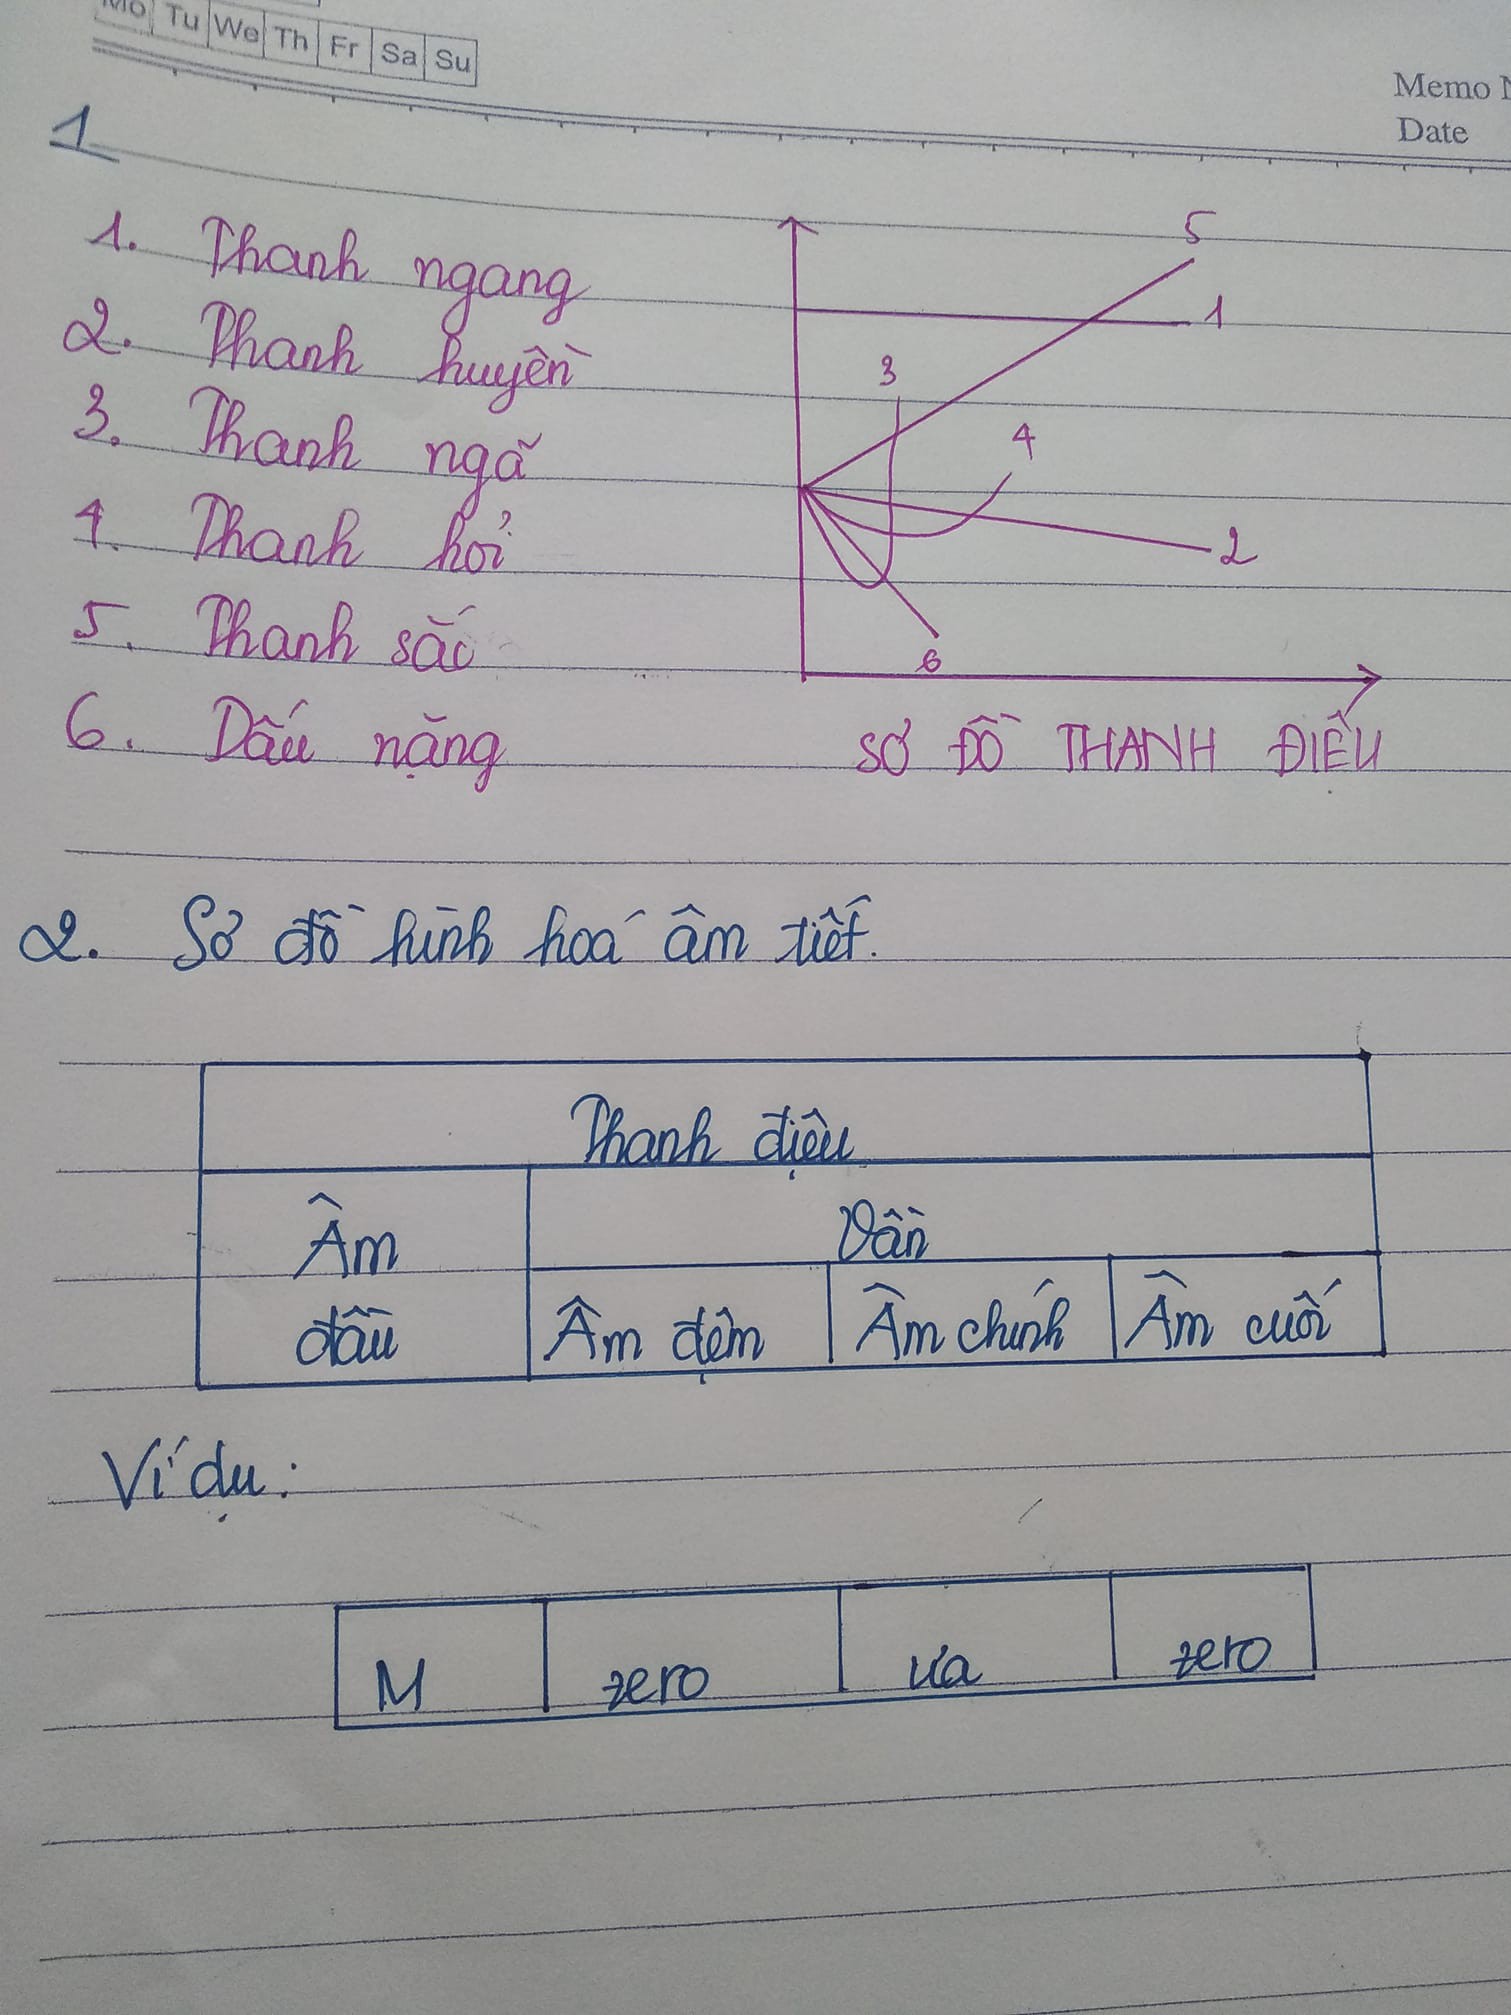 Mo Tu We Th Fr Sa Su
Memo
Date
1
1. Thanh ngang
2. Thanh huyền
3. Thanh ngã
4. Thanh hỏi
5. Thanh sắc
6. Dấu nặng
5
1
3
4
2
6
SƠ ĐỒ THANH ĐIỆU
2. Sơ đồ hình hoá âm tiết.
Thanh điệu
Âm đầu
Vần
Âm đệm Âm chính Âm cuối
Ví dụ:
M zero ưa zero